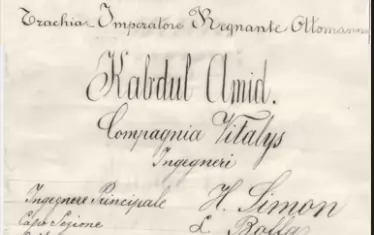 Trachia Imperatore Regnante Ottomanno
Kabdul Amid.
Compagnia Vitalys
Ingegneri
Ingegnere Principale H. Simon
Capo Sezione L. Bolla